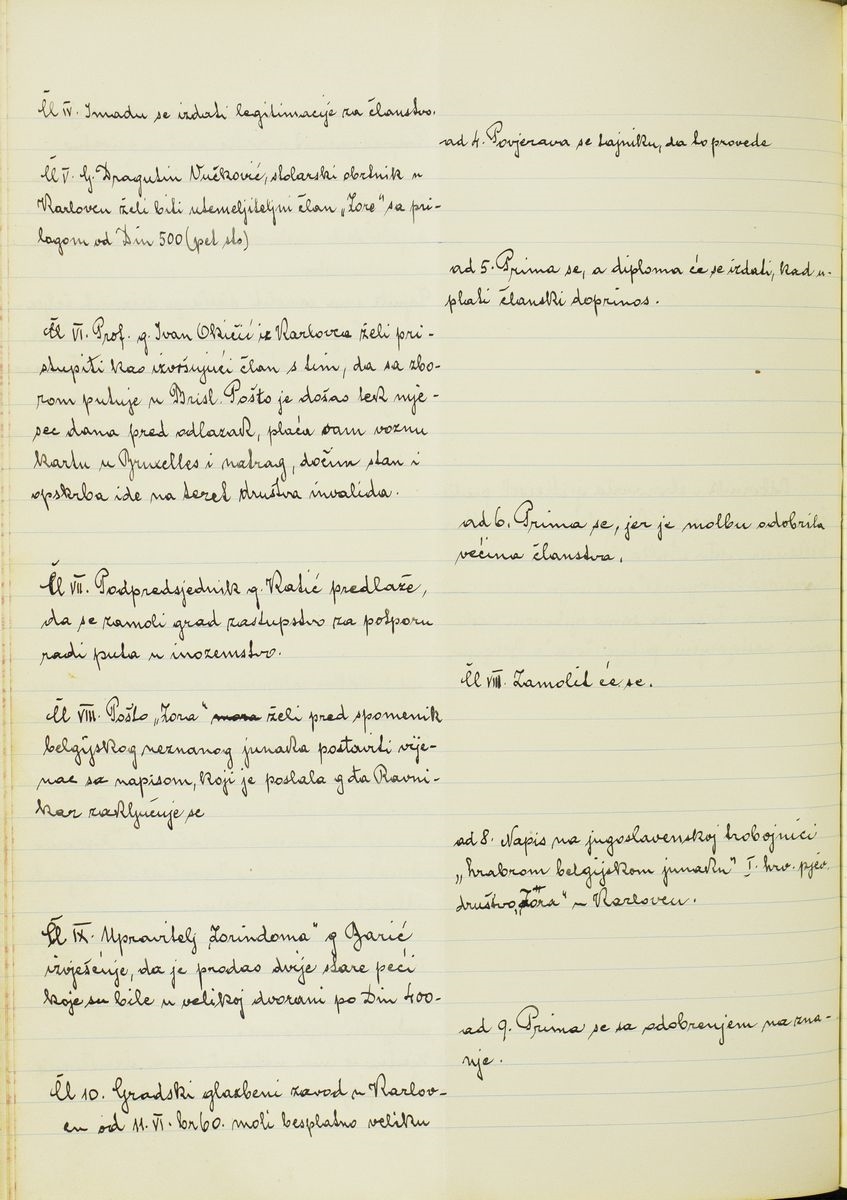 Čl IV. Imadu se izdati legitimacije za članstvo.
ad 4. Povjerava se tajniku, da to provede
Čl V. G. Dragutin Vučković, stolarski obrtnik u
Karlovcu želi biti utemeljiteljni član „Zore" sa pri-
lagom od Din 500 (pet sto)
ad 5. Prima se, a diploma će se izdati, kad u-
plati članski doprinos.
Čl VI. Prof. g. Ivan Okičić iz Karlovca želi pri-
stupiti kao izvršujući član s tim, da sa zbo-
rom putuje u Brisl. Pošto je došao tek mje-
sec dana pred odlazak, plaća sam voznu
kartu u Bruxelles i natrag, dočim stan i
opskrba ide na teret društva invalida.
ad 6. Prima se, jer je molbu odobrila
većina članstva.
Čl VII. Podpredsjednik g. Katić predlaže,
da se zamoli grad zastupstvo za potporu
radi puta u inozemstvo.
Čl VIII. Zamolit će se.
Čl VIII. Pošto „Zora" mora želi pred spomenik
belgijskog neznanog junaka postaviti vije-
nac sa napisom, koji je poslala g đa Ravni-
kar zaključuje se
ad 8. Napis na jugoslavenskoj trobojnici
„hrabrom belgijskom junaku" I. hrv. pjev.
društvo „Zora" – Karlovcu.
Čl IX. Upravitelj „Zorindoma" g Barić
izvješćuje, da je prodao dvije stare peći
koje su bile u velikoj dvorani po Din 400-
ad 9. Prima se sa odobrenjem na zna-
nje.
Čl 10. Gradski glazbeni zavod u Karlov-
cu od 11. VI. br 60. moli besplatno veliku